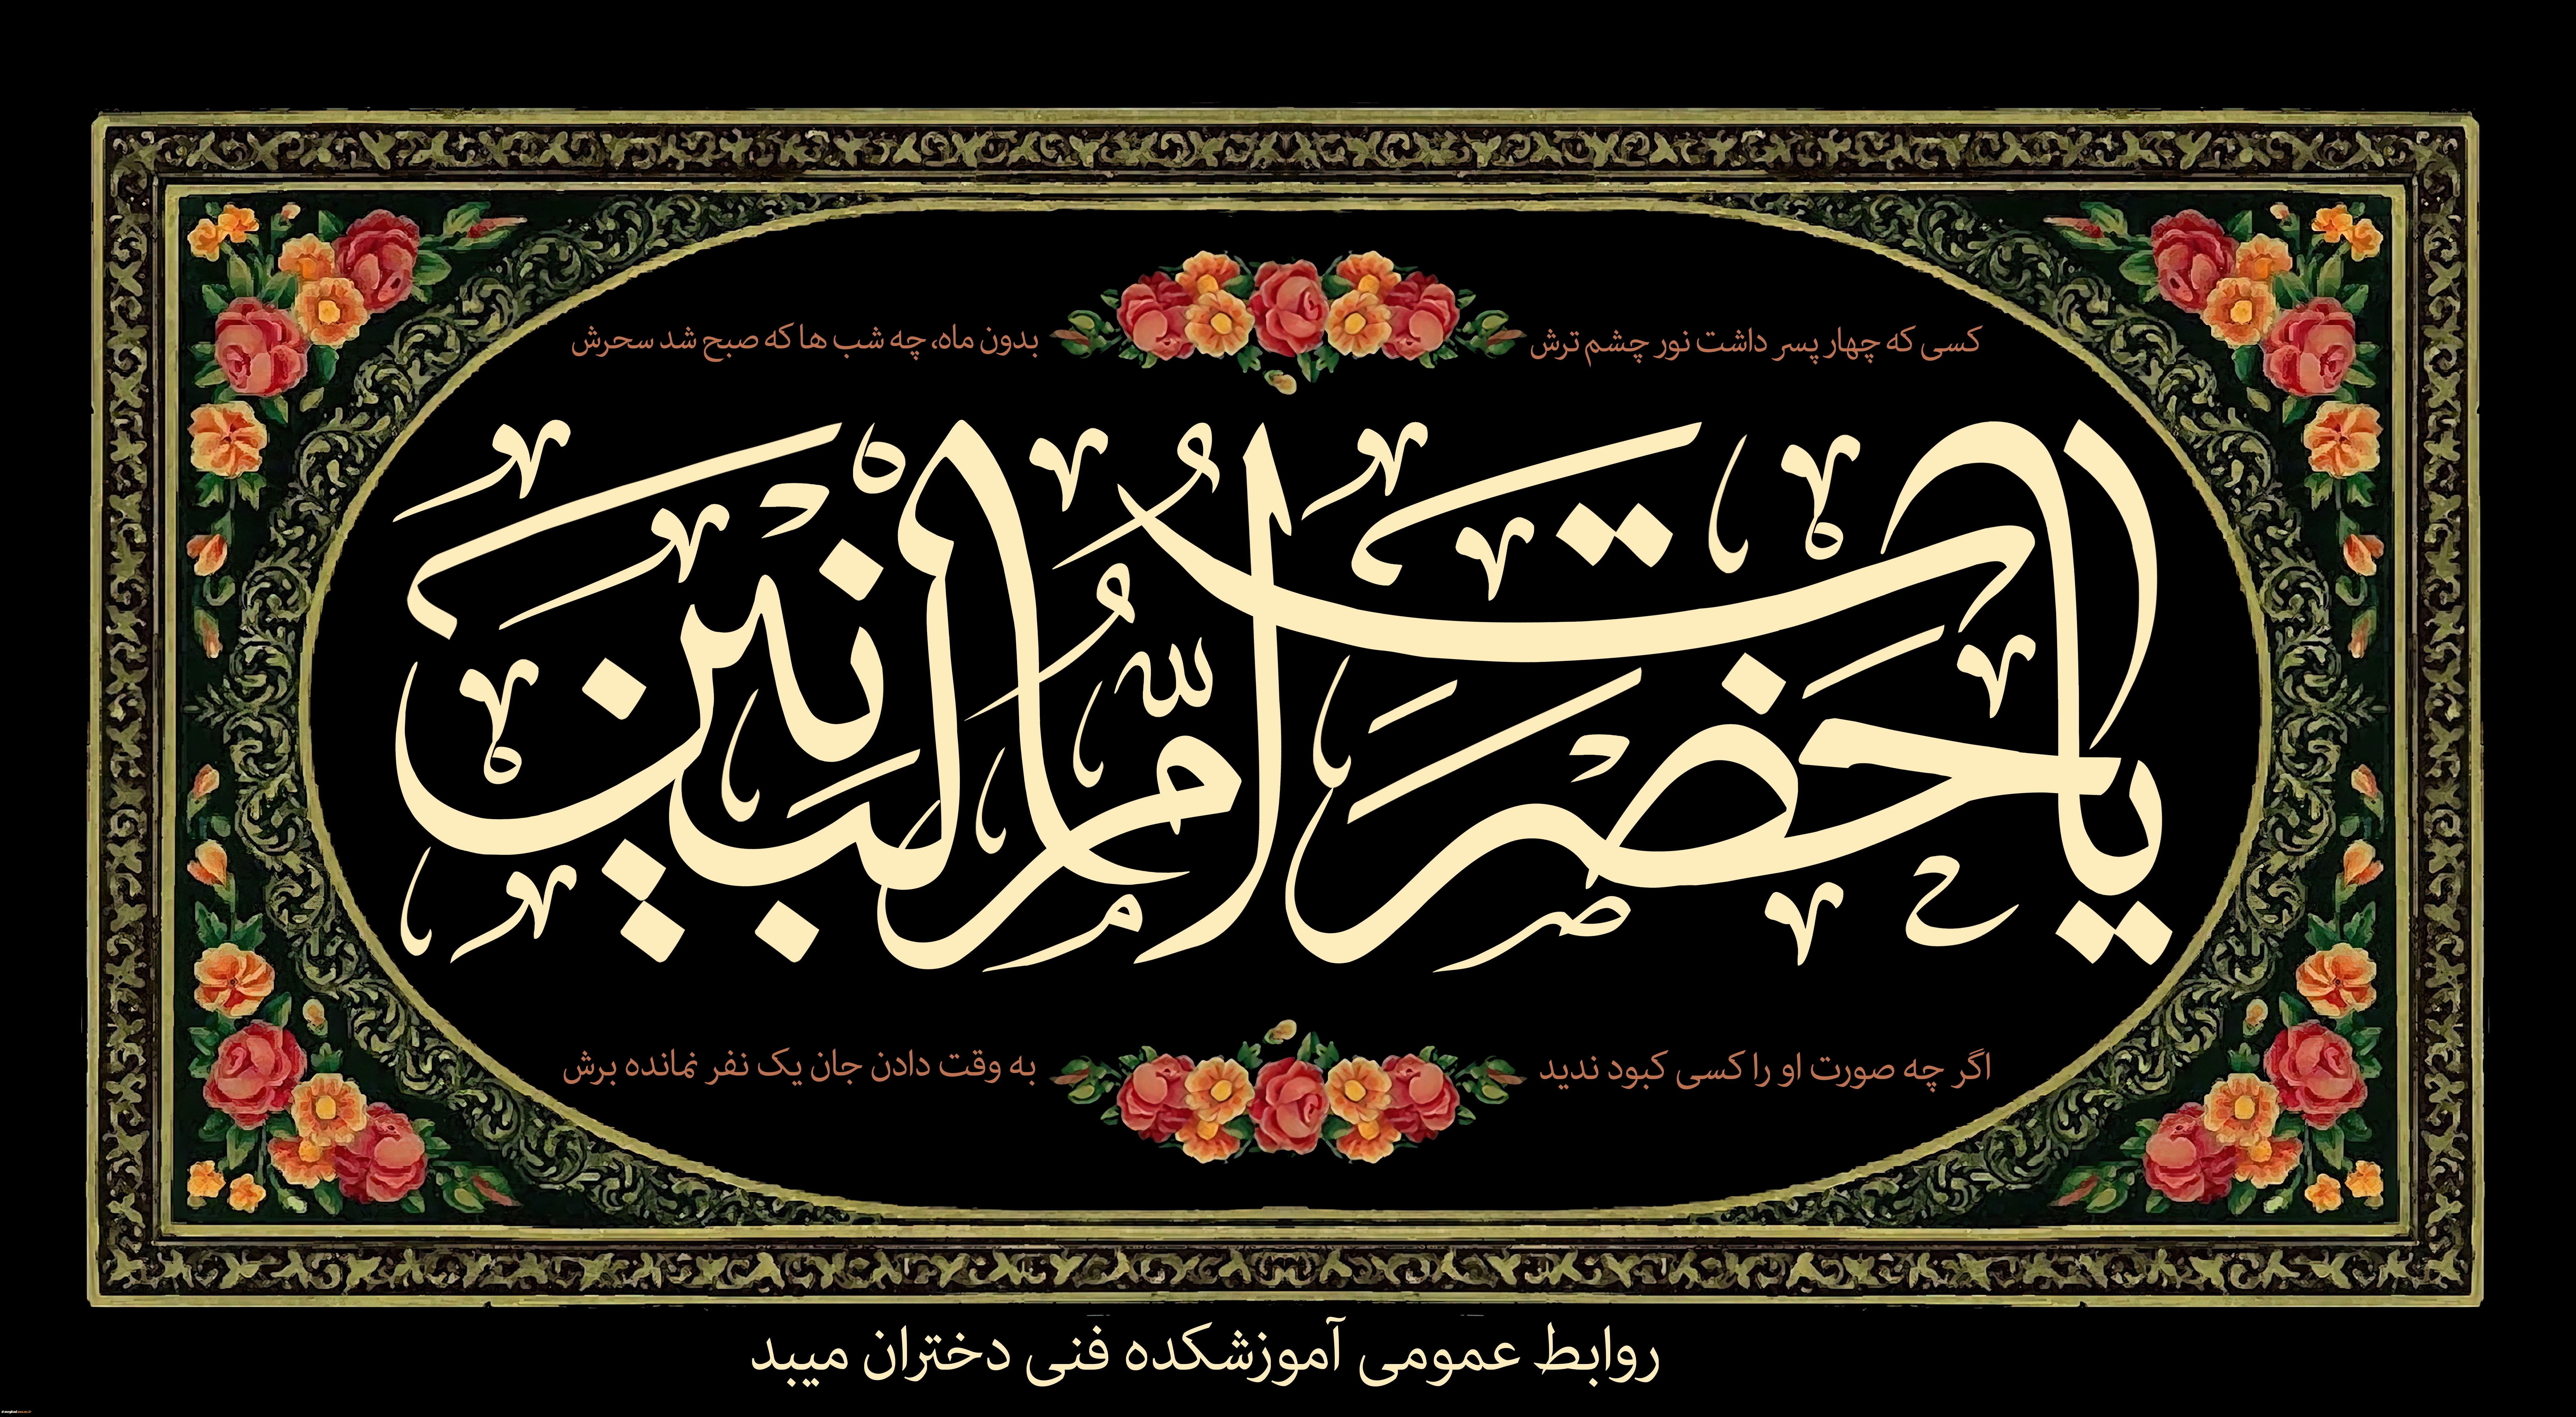 کسی که چهار پسر داشت نور چشم ترش
بدون ماه، چه شب ها که صبح شد سحرش
یا حضرت ام البنین
اگر چه صورت او را کسی کبود ندید
به وقت دادن جان یک نفر نمانده برش
روابط عمومی آموزشکده فنی دختران میبد